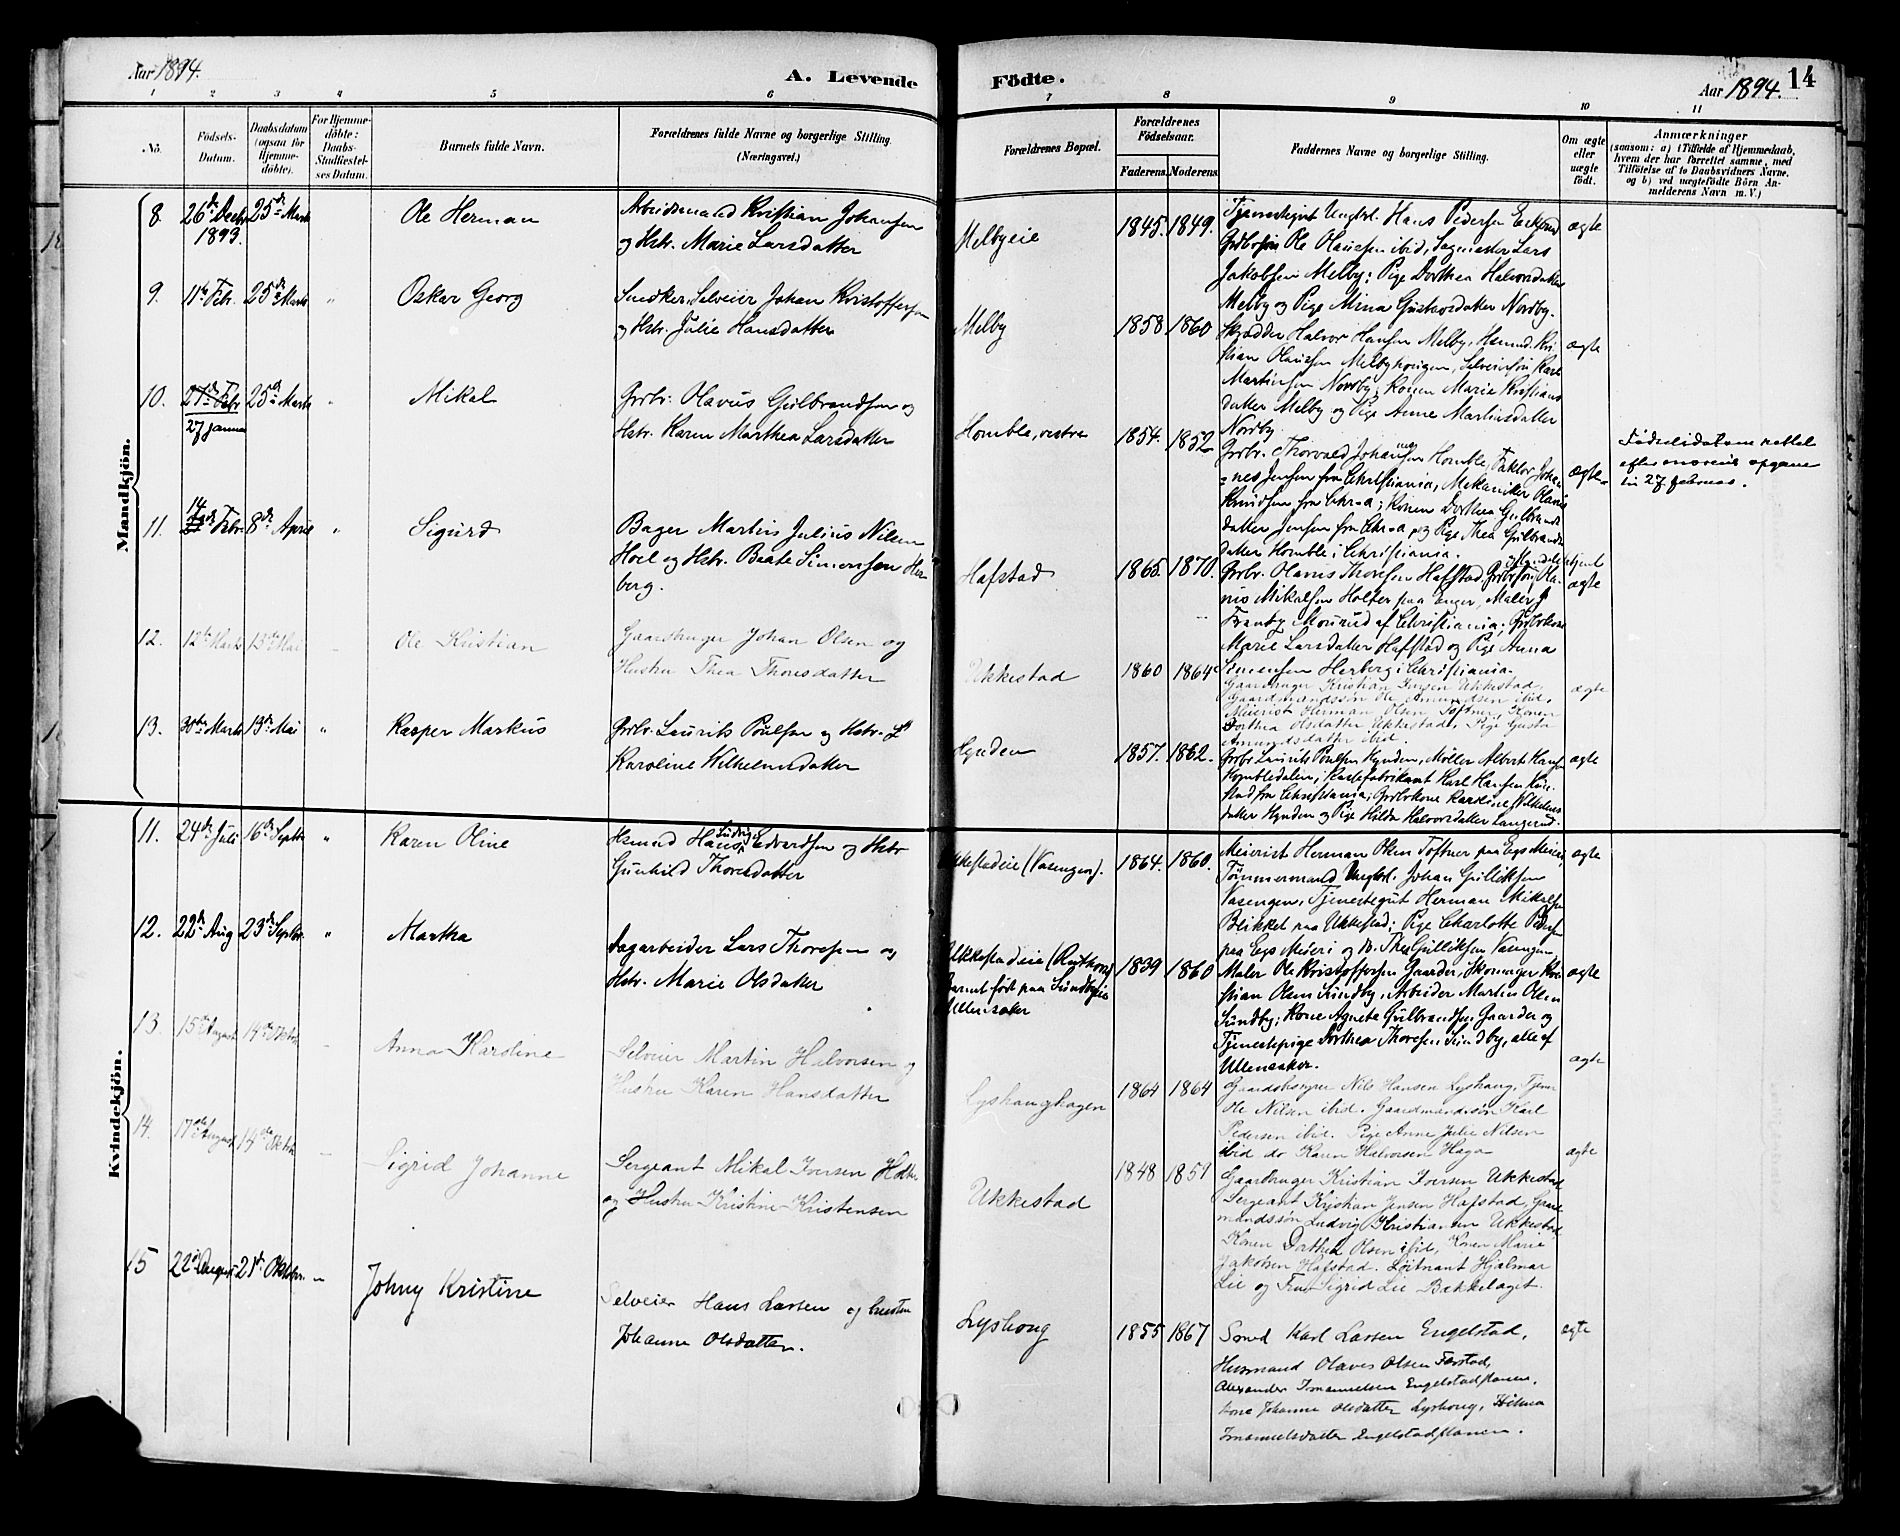 Aar 1894.
A. Levende Födte.
Aar 1894. 14
1 2 3 4 5 6 7 8 9 10 11
No.
Födsels-Datum.
Daabsdatum (ogsaa for Hjemmedöbte).
For Hjemmedöbte: Daabs-Stadfæstelses Datum.
Barnets fulde Navn.
Forældrenes fulde Navne og borgerlige Stilling.
(Næringsvei.)
Forældrenes Bopæl.
Forældrenes Födselsaar.
Faderens. Moderens.
Faddernes Navne og borgerlige Stilling.
Om ægte eller uægte födt.
Anmærkninger
(saasom: a) i Tilfælde af Hjemmedaab, hvem der har forrettet samme, med Tilföielse af to Daabsvidners Navne, og b) ved uægtefödte Börn Anmelderens Navn m.V.)
Mandkjön.
8. 26de Decbr 1893. 25de Marts Ole Herman
Arbeidsmand Kristian Johansen
og Hstr. Marie Larsdatter
Melbyeie 1845. 1849.
Tjenestegut Ungkl. Hans Pedersen
Grdbrsön Ole Olaussen ibid, Sagmester Lars
Jakobsen Melby; Pige Dorthea Halvorsdatter
Melby og Pige Mina Gustavsdatter Nordby.
ægte
9. 11te Febr. 25de Marts " Oskar Georg
Snedker, Selveier Johan Kristoffersen
og Hstr. Julie Hansdatter
Melby 1858 1860
Skrædder Halvor Hansen Melby, Husmd. Kri-
stian Olaussen Melbyhaugen, Selveiersön Karl
Martinsen Nordby; Konen Marie Kristians
datter Melby og Pige Anne Martinsdatter
Nordby.
ægte
10. 27de Febr 27 januar 25de Marts " Mikal
Grbr. Olavus Gulbrandsen og
Hstr. Karen Marthea Larsdatter
Homble, vestre 1854. 1852
Grbr. Thorvald Johansen Homble, Faktor Johan-
nes Jensen fra Christiania, Mekaniker Olaus
Knudsen fra Chr-a; Konen Dorthea Gulbrands
datter Jensen fra Chr-a og Pige Thea Gulbrands
datter Homble i Christiania.
ægte
Födselsdatum rettet
efter moerens opgave
til 27 februar.
11. 14 Febr 8de April " Sigurd
Bager Martin Julius Nilsen
Hoel og Hstr. Beate Simensen Her-
berg.
Hafstad 1865. 1870.
Grbr. Olaus Thoresen Hafstad, Grbrsön Ola-
us Mikalsen Holter paa Enger, Maler J
Franby Mourud af Christiania; Grdbrkone
Marie Larsdatter Hafstad og Pige Anna
Simensen Herberg i Christiania.
ægte
12. 12te Marts 13de Mai " Ole Kristian
Gaardbruger Johan Olsen og
Hustru Thea Thoresdatter
Ukkestad 1860 1864
Gaardbruger Kristian Iversen Ukkestad,
Gaardmandssön Ole Amundsen ibid,
Meierist Herman Olsen Toftner, Konen
Dorthea Olsdatter Ukkestad, Pige Gusta
Amundsdatter ibid.
ægte
13. 30te Marts 13de Mai " Kasper Markus
Grbr. Laurits Poulsen og Hstr.
Karoline Wilhelmsdatter
Hynden 1857. 1862.
Grbr Laurits Poulsen Hynden, Möller Albert Hansen
Hombledalen, Kassefabrikant Karl Hansen
fra Christiania; Grdbrkone Karoline Wilhelms
datter Hynden og Pige Hilda Halvorsdatter Langerud.
ægte
Kvindekjön.
11. 24de Juli 16de Septbr " Karen Oline
Husmd Hans Ludvig Edvardsen og Hstr
Gunhild Thoresdatter
Ukkestadeie (Vasengen). 1864. 1860.
Meierist Herman Olsen Toftner paa Egs Meieri,
Tömmermand Ungkl. Johan Gulliksen
Vasengen, Tjenestegut Herman Mikalsen
Blikket paa Ukkestad; Pige Charlotte Pedersen
paa Egs Meieri og D. Thea Gulliksen Vasengen
ægte
12. 22de Aug 23de Septbr. " Martha
Dagarbeider Lars Thoresen og
Hstr. Marie Olsdatter
Ukkestadeie
Barnet født paa Sundbyeie
Ullensaker
1839 1860
Maler Ole Kristoffersen Gaarder, Skomager Kri-
stian Olsen Sundby, Arbeider Martin Olsen
Sundby; Kone Agnete Gulbrandsen Gaarder og
Tjenestepige Dorthea Thoresen Sundby, alle af
Ullensaker.
ægte
13. 15de August 14de Oktbr " Anna Karoline
Selveier Martin Halvorsen og
Hustru Karen Hansdatter
Lyshaughagen 1864 1864
Gaardbruger Nils Hansen Lyshaug, Tjener
Ole Nilsen ibid. Gaardmandssön Karl
Pedersen ibid. Pige Anne Julie Nilsen
ibid do Karen Halvorsen Haga
ægte
14. 17de August 14de Oktbr " Sigrid Johanne
Sergeant Mikal Iversen Holter
og Hustru Kristine Kristensen
Ukkestad 1848 1859
Gaardbruger Kristian Iversen Ukkestad
Sergeant Kristian Jensen Hafstad, Gaard-
mandssön Ludvig Kristiansen Ukkestad,
Konen Dorthea Olsen ibid, Konen Marie
Jakobsen Hafstad. Löitnant Hjalmar
Lie og Fru Sigrid Lie Bækkelaget.
ægte
15 22de August 21de Oktober " Johny Kristine
Selveier Hans Larsen og hustru
Johanne Olsdatter.
Lyshoug 1855 1867
Smed Karl Larsen Engelstad,
Husmand Olaves Olsen Farstad,
Alexander Imanuelsen Engelstadflaten.
Kone Johanne Olsdatter Lyshoug, Hilma
Imanuelsdatter Engelstadflaten.
ægte